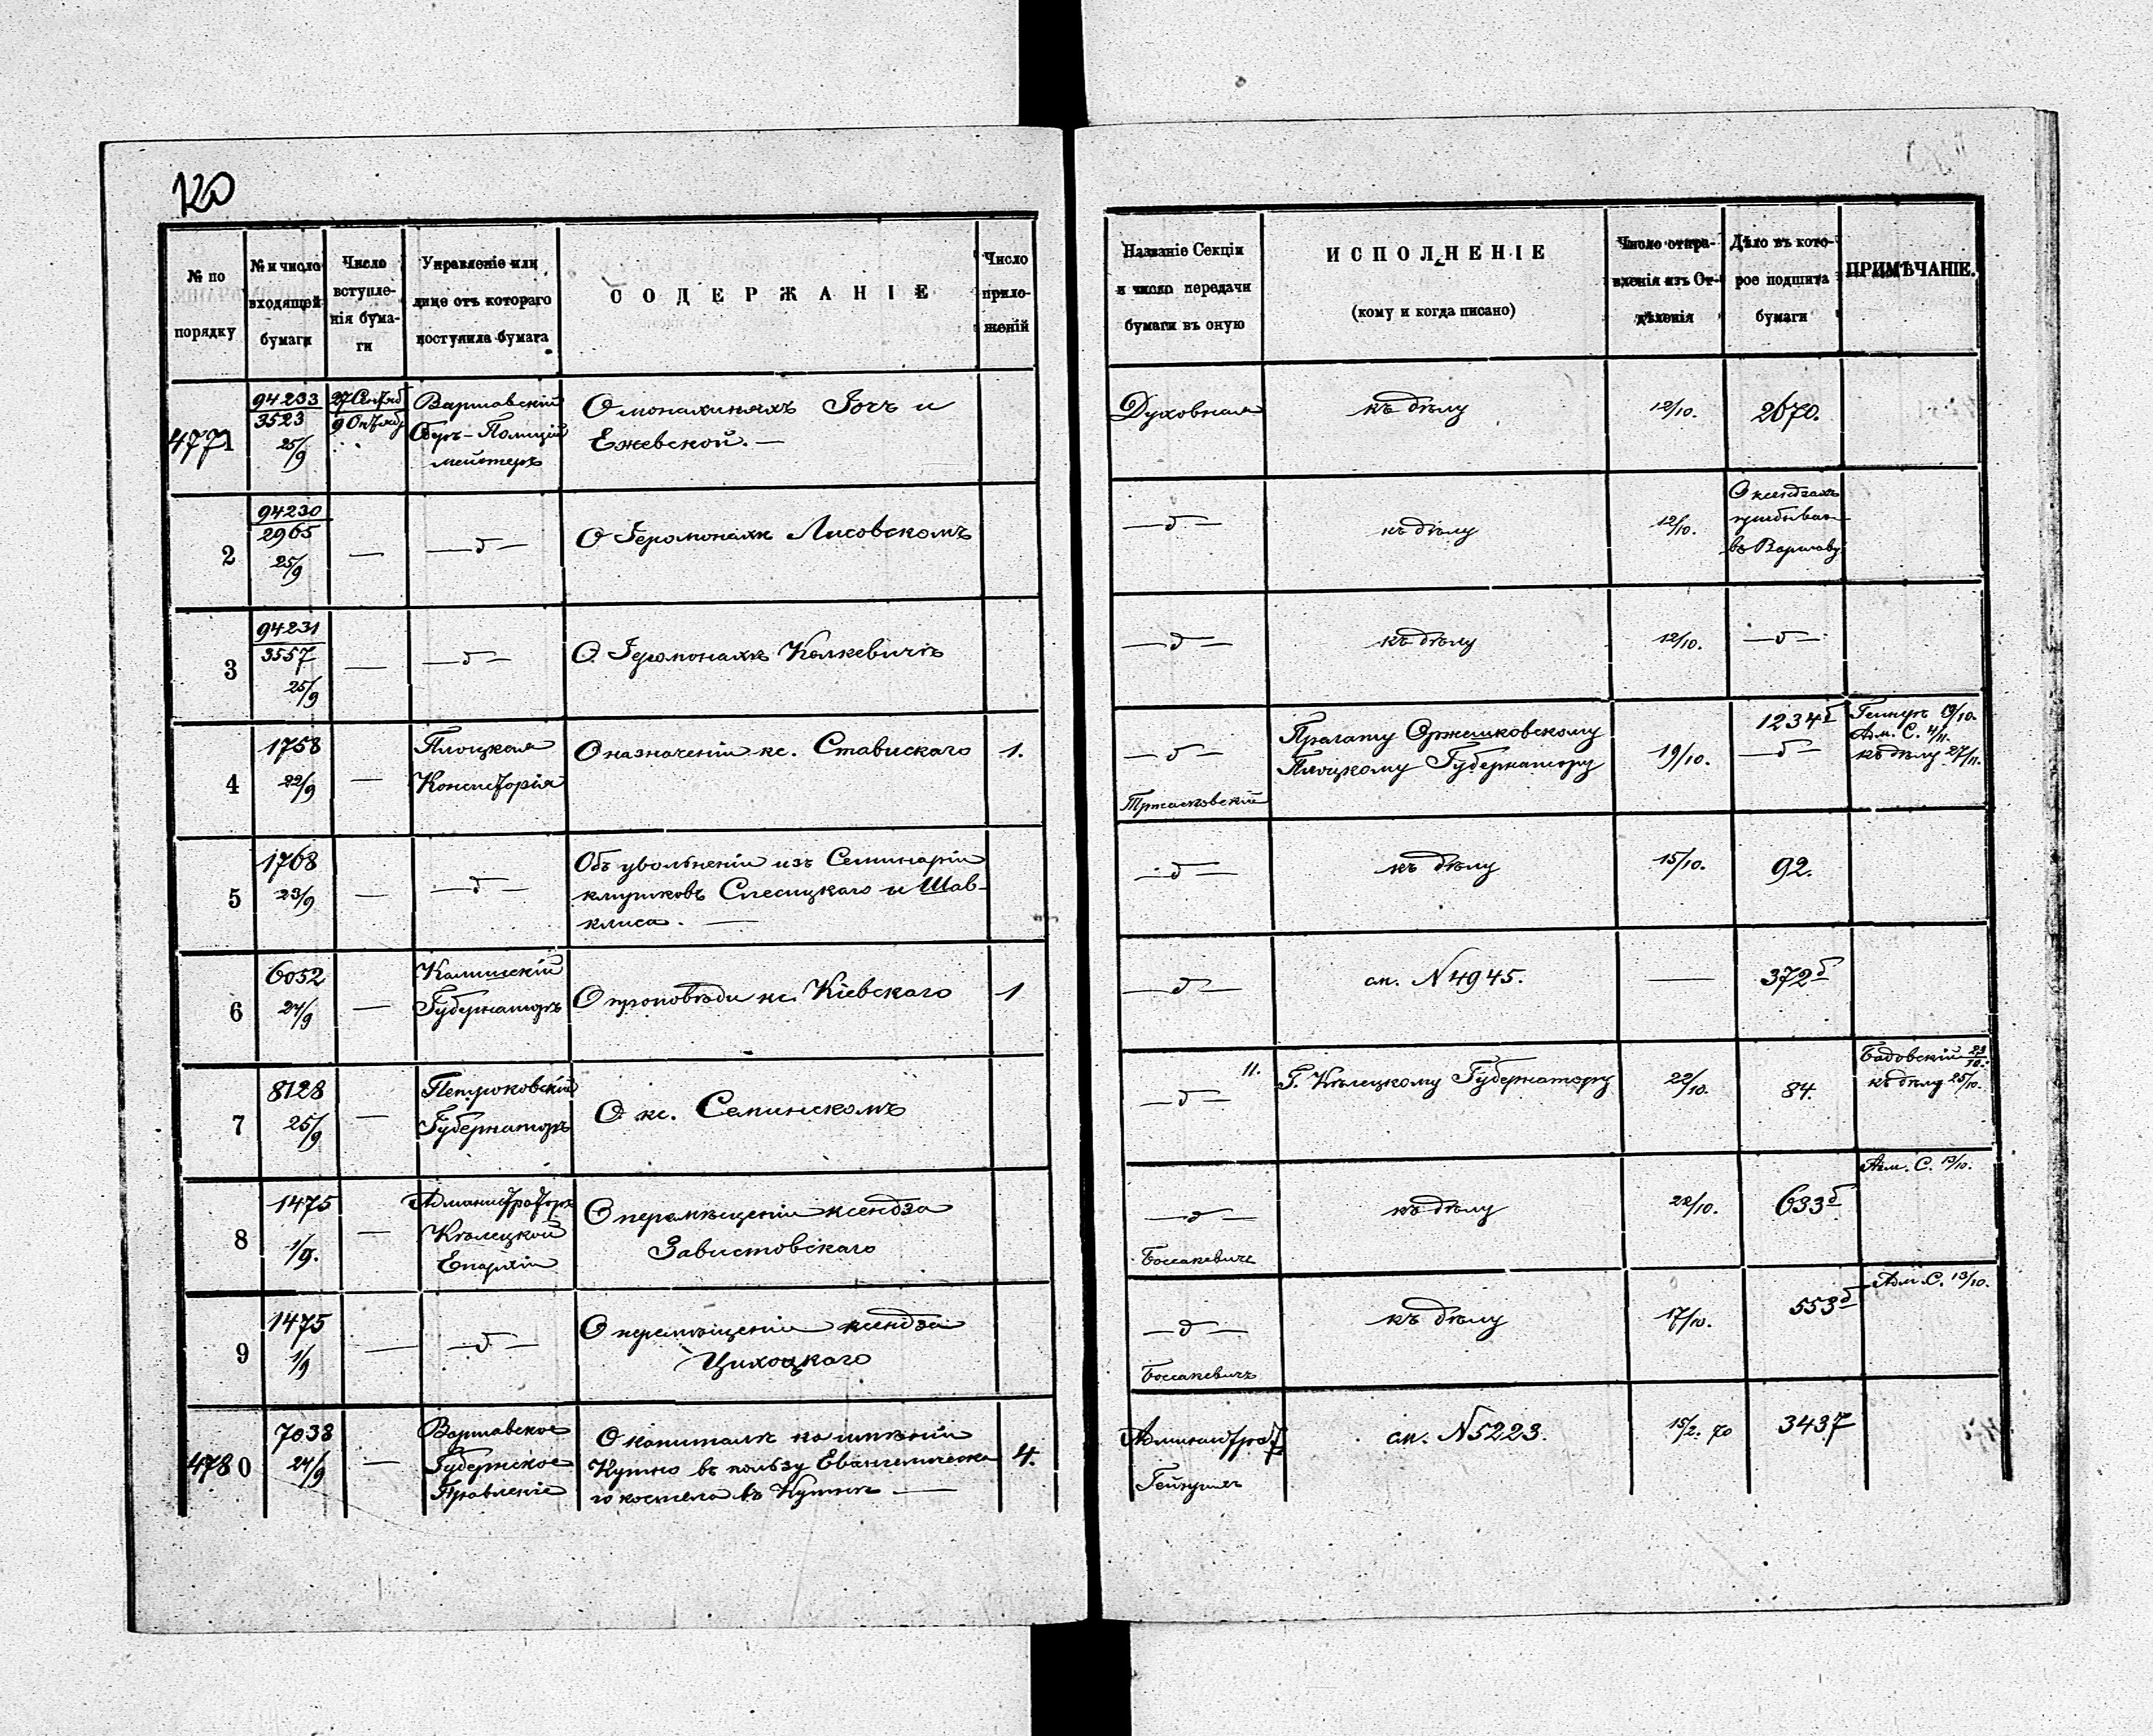 120
№ по порядку
№ и число входящей бумаги
Число вступленія бумаги
Управленіе или лице отъ котораго поступила бумага
СОДЕРЖАНІЕ
Число приложеній
Названіе Секціи и число передачи бумаги въ оную
ИСПОЛНЕНІЕ
(кому и когда писано)
Число отправленія изъ Отдѣленія
Дѣло въ которое подшита бумаги
ПРИМѢЧАНІЕ.
4771
94233
3523
25/9
27 Сентяб
9 Октяб
Варшавскій
Оберъ-Полицій
мейстеръ
О монахиняхъ и
Ежевской. —
Духовная
къ дѣлу
12/10.
2670.
2
94230
2965
25/9
—
— д —
О Іеромонахѣ Лисовскомъ
— д —
къ дѣлу
12/10.
О ксендзахъ
въ Варшаву
3
94231
3557
25/9
—
— д —
О Іеромонахѣ
— д —
къ дѣлу
12/10.
— д —
4
1758
22/9
—
Плоцкая
Консисторія
О назначеніи кс. Ставискаго
1.
— д —
Тржасковскій
Прелату Оржешковскому
Плоцкому Губернатору
19/10.
1234б
— д —
19/10.
Адм. С. 4/11.
къ дѣлу 27/11.
5
1768
23/9
—
— д —
Объ увольненіи изъ Семинаріи
клириковъ и Шав-
клиса. —
— д —
къ дѣлу
15/10.
92.
6
6052
24/9
—
Калишскій
Губернаторъ
О проповѣди кс. Кіевскаго
1
— д —
см. № 4945.
—
372б
7
8128
25/9
—
Петроковскій
Губернаторъ
О кс. Семинскомъ
— д —
11.
Г. Кѣлецкому Губернатору
22/10.
84.
Бадовскій 23/10.
къ дѣлу 25/10.
8
1475
1/9.
—
Администраторъ
Кѣлецкой
Епархіи
О перемѣщеніи ксендза
Завистовскаго
— д —
Боссакевичъ
къ дѣлу
22/10.
633б
Адм. С. 13/10.
9
1475
1/9
—
— д —
О перемѣщеніи ксендза
Цихоцкаго
— д —
Боссакевичъ
къ дѣлу
17/10.
553б
Адм. С. 13/10.
4780
7038
24/9
—
Варшавское
Губернское
Правленіе
О капиталѣ на имѣніи
Кутно въ пользу Евангелическа
го костела въ Кутнѣ —
4.
см. № 5223.
15/2. 70
3437